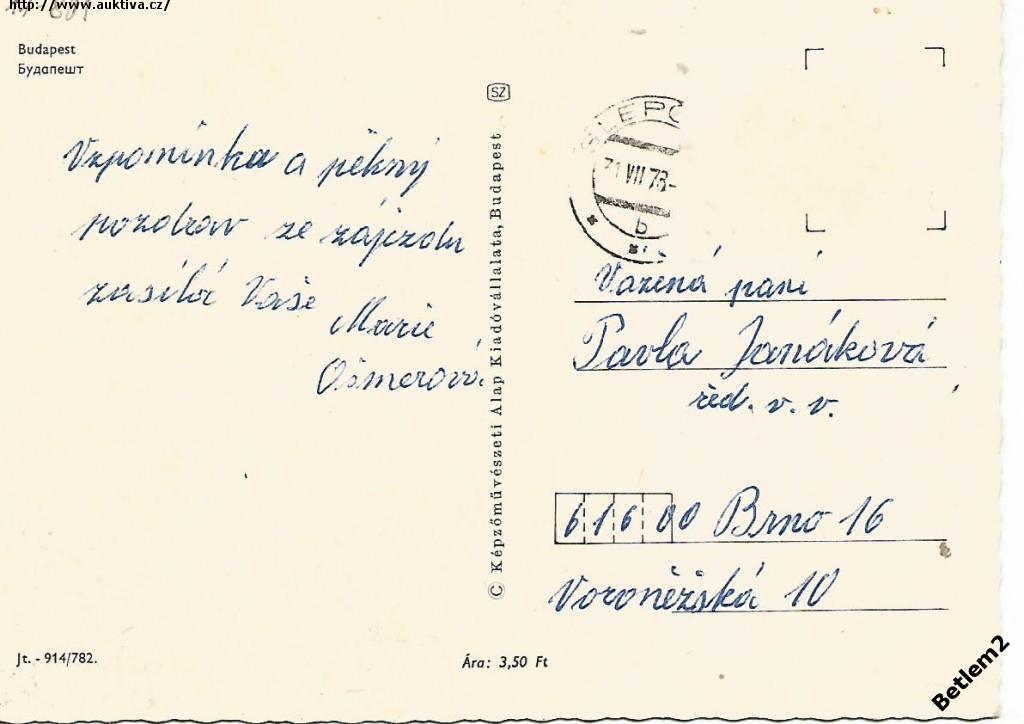 http://www.auktiva.cz/
Budapest
Будапешт
Vzpomínka a pěkný
pozdrav ze zájezdu
zasílá Vaše
Marie
Ošmerová
SZ
© Képzőművészeti Alap Kiadóvállalata, Budapest
31 VII 78-
b
Vážená paní
Pavla Janáková
řed. v. v.
61600 Brno 16
Voroněžská 10
Jt. - 914/782.
Ára: 3,50 Ft
Betlem2